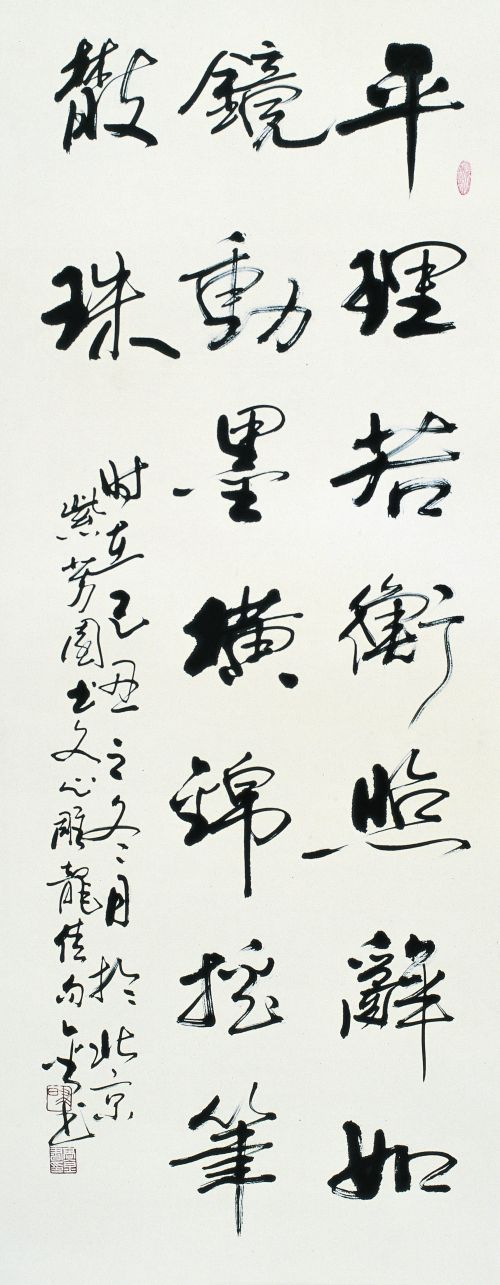 平理若衡照辭如
鏡動墨橫錦搖筆
散珠
时在己丑之冬月於北京
紫芳園书文心雕龍佳句